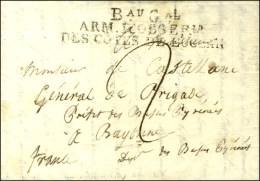 BAU GAL
ARM. D'OBSERV.
DES CÔTES DE L'OCÉAN
Monsieur de Castellane
Général de Brigade
Préfet des Basses Pyrénées
à Bayonne
France Dpt des Basses Pyrénées
2